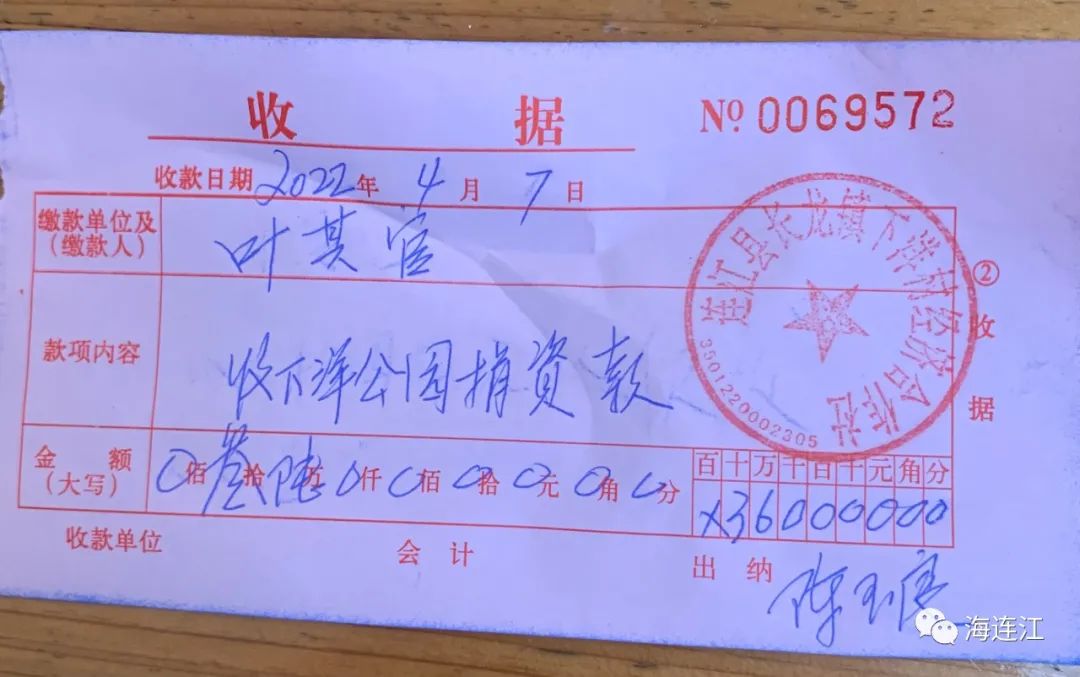 收 据
№ 0069572
收款日期 2022年 4月 7日
缴款单位及
（缴款人）
叶其官
款项内容
收下洋公园捐资款
金 额
（大写）
0佰叁拾陆万0仟0佰0拾0元0角0分
百十万千百十元角分
x36000000
收款单位
会 计
出 纳
陈玉
② 收据
连江县长龙镇下洋村经济合作社
3501220002305
海连江